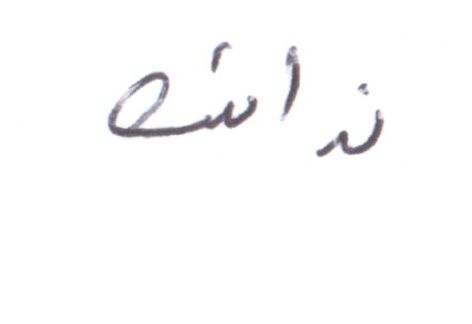 نداشت